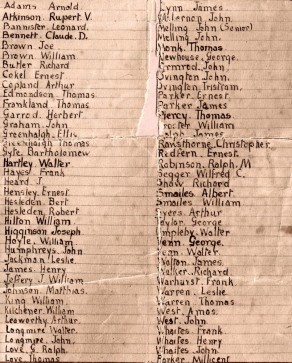 Adams Arnold.
Atkinson. Rupert. V.
Bannister. Leonard.
Bennett. Claude. D.
Brown Joe
Brown William
Butler Richard
Cokel Ernest
Copland Arthur
Edmondson, Thomas
Frankland Thomas
Garrod. Herbert
Graham. John
Greenhalgh. Ellis.
Greenhalgh Thomas
Gyte. Bartholomew
Hartley Walter
Hayes. Frank
Heard. J.
Hensley. Ernest
Hesleden, Bert
Hesleden, Robert
Hilton William
Higginson Joseph
Hoyle, William
Humphreys. John
Jackman, Leslie
James. Henry
Jeffery. J. William
Johnson. Matthias.
King. William.
Kitchener. William
Leaworthy. Arthur.
Longmire Walter.
Longmire. John.
Love. G. Ralph
Love. Thomas
Lynn. James.
John.
Melling John. (Senior)
Melling John.
Monk. Thomas
Newhouse. George.
Ormrod. John.
Ovington. John.
Ovington. Tristram.
Parker. Ernest
Parker James
Percy. Thomas.
Procter William
James.
Rawsthorne. Christopher
Redfern. Ernest.
Robinson, Ralph. M
Segger Wilfred C.
Shaw Richard
Smailes Albert.
Smailes William
Arthur
Taylor. George
Umpleby. Walter
Venn. George.
Venn. Walter
Walton. James.
Walker. Richard.
Warhurst. Frank
Warren. Leslie.
Warren Thomas
West. Amos.
West. John
Whaites Frank
Whaites. Henry
Whaites. John
Parker Millicent